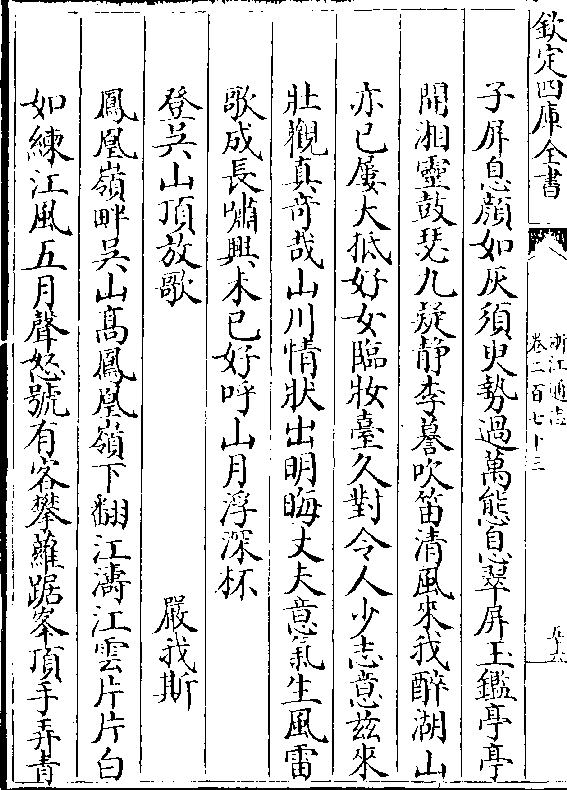 欽定四庫全書
浙江通志
卷二百七十三
子屏息顔如灰須臾勢過萬態息翠屏玉鑑亭亭
開湘靈鼓瑟九疑静李謩吹笛清風來我醉湖山
亦已屢大抵好女臨妝臺久對令人少志意兹來
壯觀真奇哉山川情狀出明晦丈夫意氣生風雷
歌成長嘯興未已好呼山月浮深杯
登吳山頂放歌 嚴我斯
鳳凰嶺畔吳山髙鳳凰嶺下翻江濤江雲片片白
如練江風五月聲怒號有客攀蘿踞峯頂手弄青